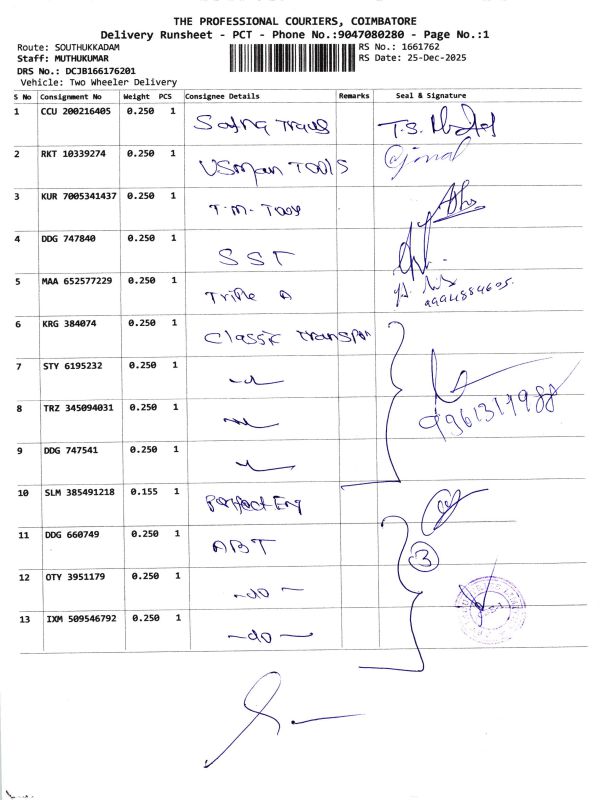 THE PROFESSIONAL COURIERS, COIMBATORE
Delivery Runsheet - PCT - Phone No.:9047080280 - Page No.:1
Route: SOUTHUKKADAM RS No.: 1661762
Staff: MUTHUKUMAR RS Date: 25-Dec-2025
DRS No.: DCJB166176201
Vehicle: Two Wheeler Delivery
S No Consignment No Weight PCS Consignee Details Remarks Seal & Signature
1 CCU 200216405 0.250 1 T.S.
2 RKT 10339274 0.250 1 USman TOOLS
3 KUR 7005341437 0.250 1 T.M. Tools
4 DDG 747840 0.250 1 SST
5 MAA 652577229 0.250 1 Triple A
6 KRG 384074 0.250 1 Classic
7 STY 6195232 0.250 1
8 TRZ 345094031 0.250 1
9 DDG 747541 0.250 1
10 SLM 385491218 0.155 1 Perfect Eng
11 DDG 660749 0.250 1 ABT 3
12 OTY 3951179 0.250 1 -do-
13 IXM 509546792 0.250 1 -do-